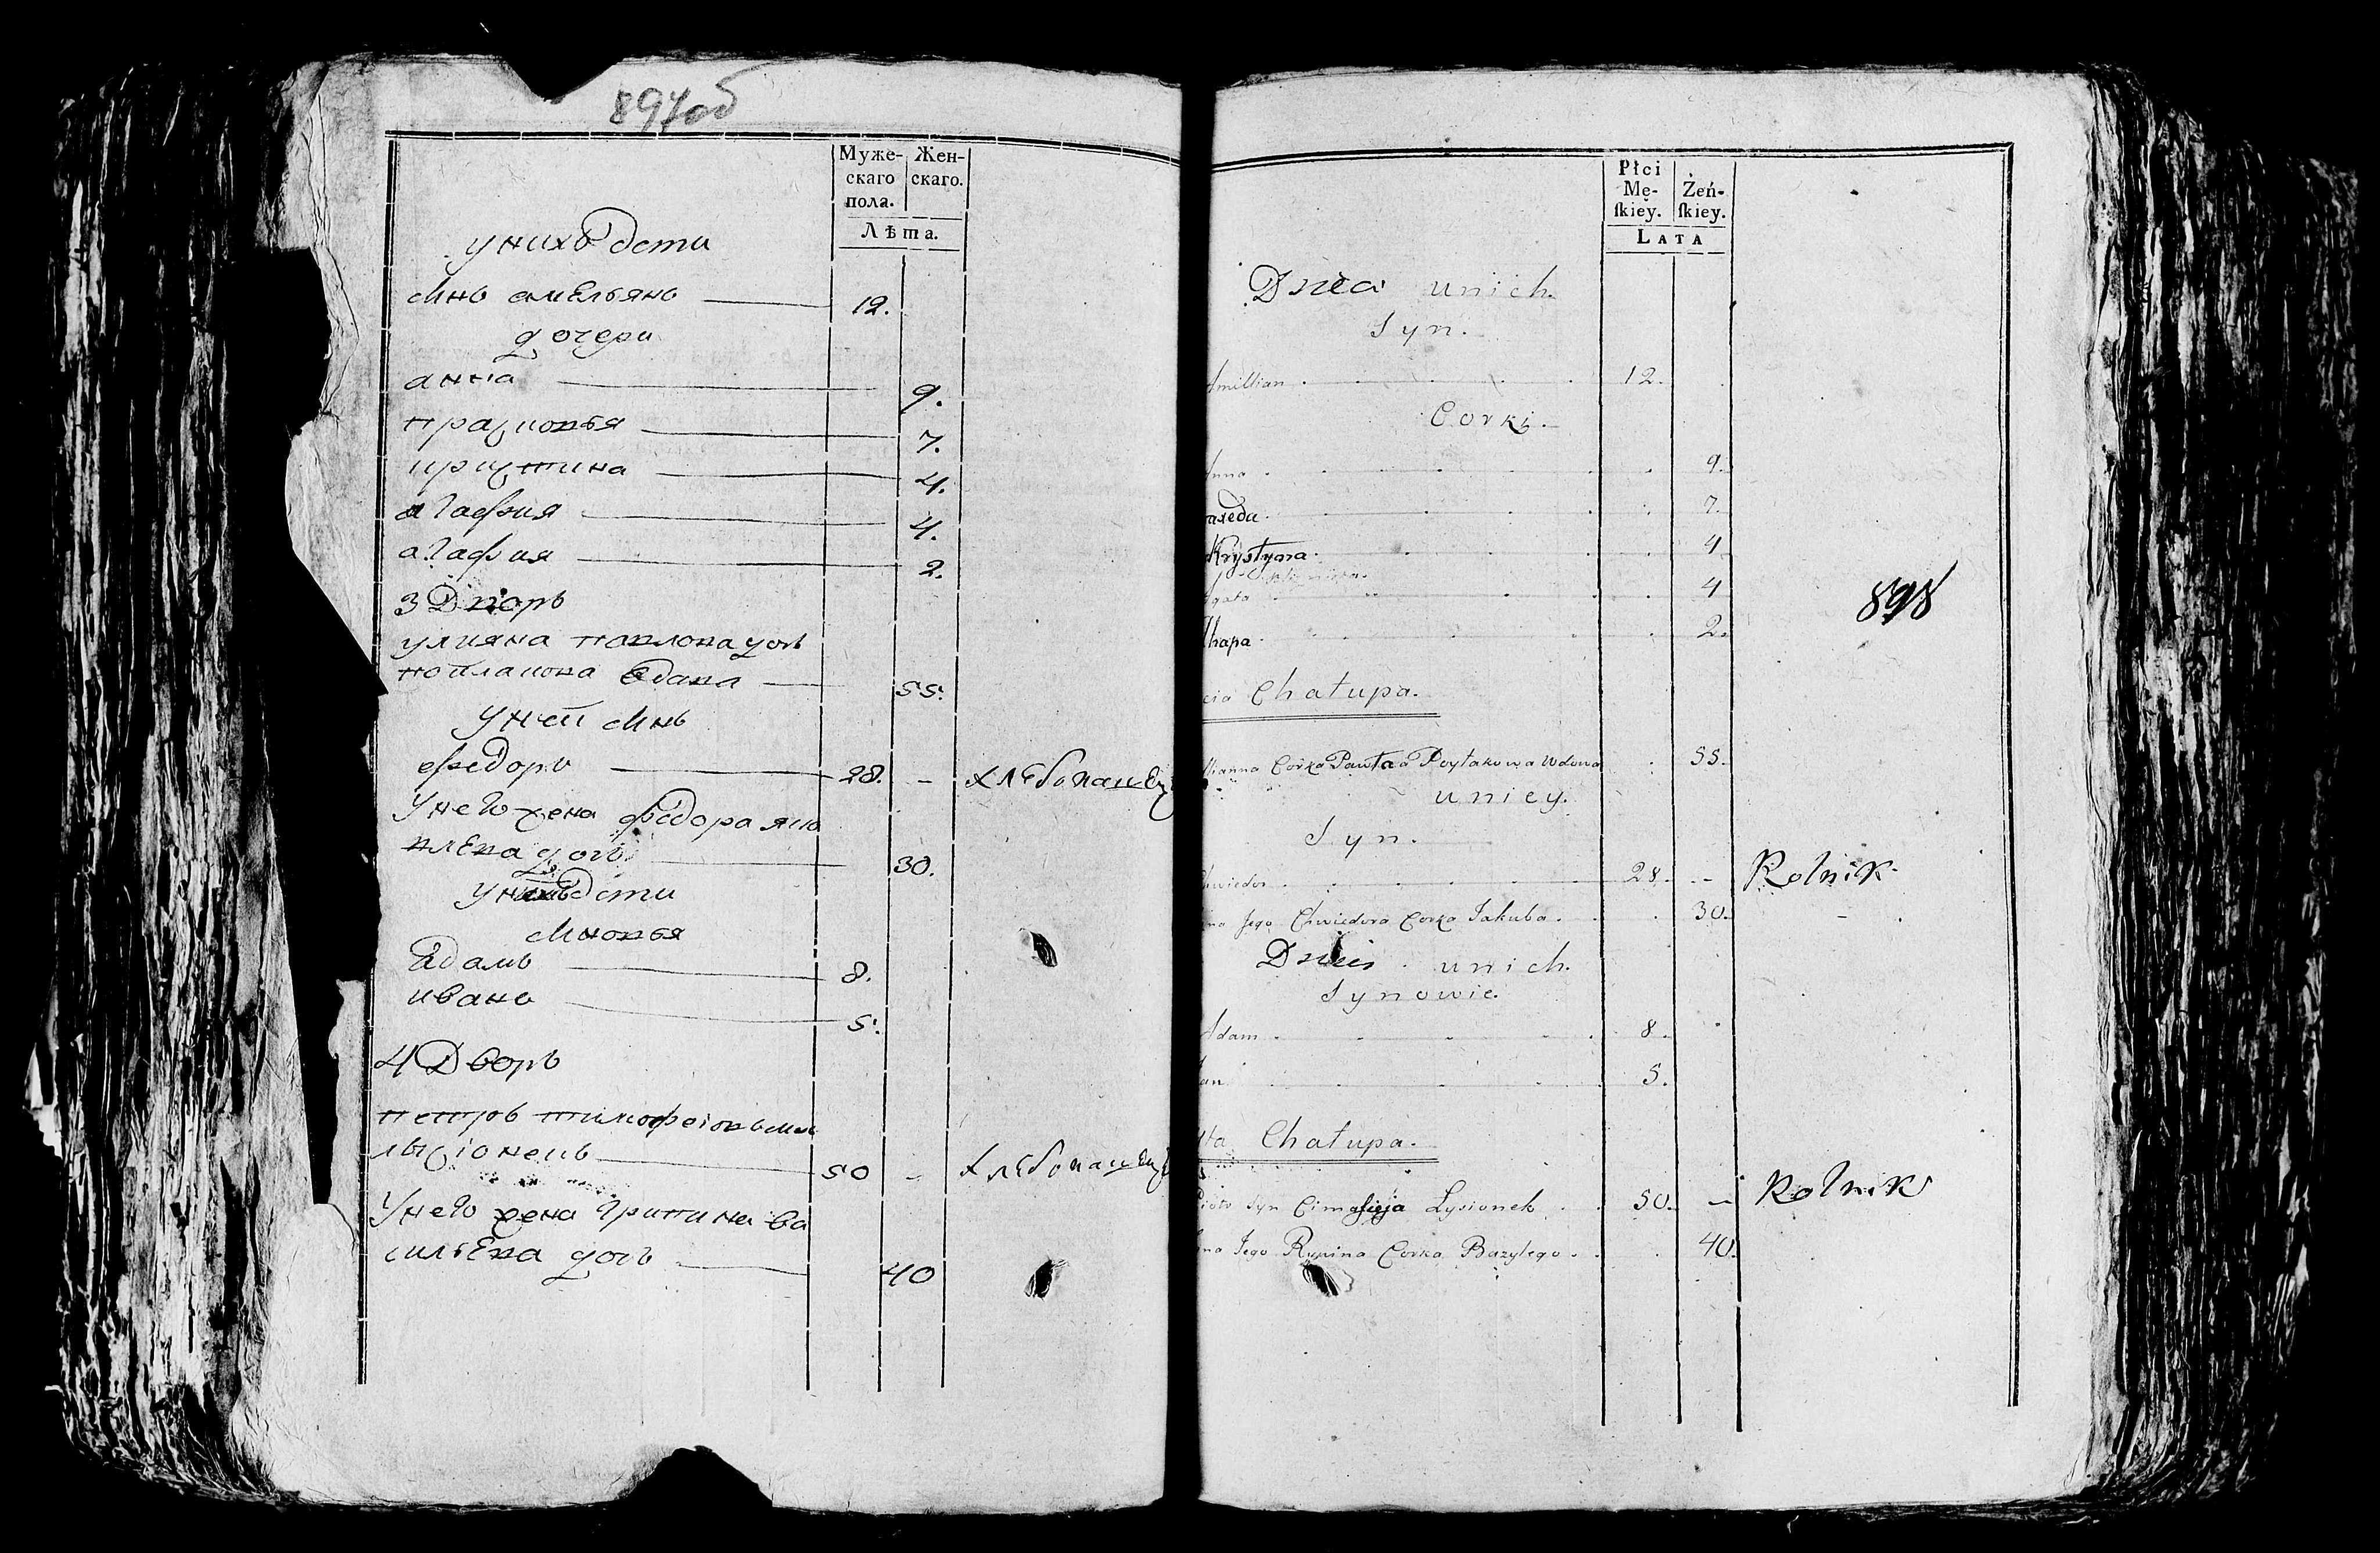 897об
Муже-
скаго
пола.
Жен-
скаго.
Лѣта.
у нихъ дети
синъ емельянъ 12.
дочери
анна 9.
прасковья 7.
кристина 4.
агафия 4.
агафия 2.
3 Дворъ
улияна павлова дочь
вдава 55.
у ней синъ
федоръ 28. – хлебопашец
у него жена федора яко
влева дочь 30.
у нихъ дети
синовья
адамъ 8.
иванъ 5.
4 Дворъ
петръ тимофеiовъ синъ
лысiонекъ 50 – хлебопашец
у него жена грипина ва
сильева дочь 40
Płci
Mę-
ſkiey.
Żeń-
ſkiey.
LATA
Dzieci unich
Syn.
Amillian 12.
Corki.
Anna 9.
7.
Krystyna 4
Agata 4
2.
Chałupa.
Corka Pawła Wdowa 55.
uniey.
Syn.
Chwiedor 28. – Rolnik
Jego Chwiedora Corka Jakuba 30.
Dzieci unich.
Synowie.
Adam 8.
Jan 5.
Chałupa.
Piotr Syn Cimafieja Lysionek 50. – Rolnik
Jego Rypina Corka Bazylego 40.
898